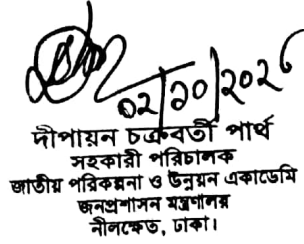 ০২/১০/২০২৫
দীপায়ন চক্রবর্তী পার্থ
সহকারী পরিচালক
জাতীয় পরিকল্পনা ও উন্নয়ন একাডেমি
জনপ্রশাসন মন্ত্রণালয়
নীলক্ষেত, ঢাকা।